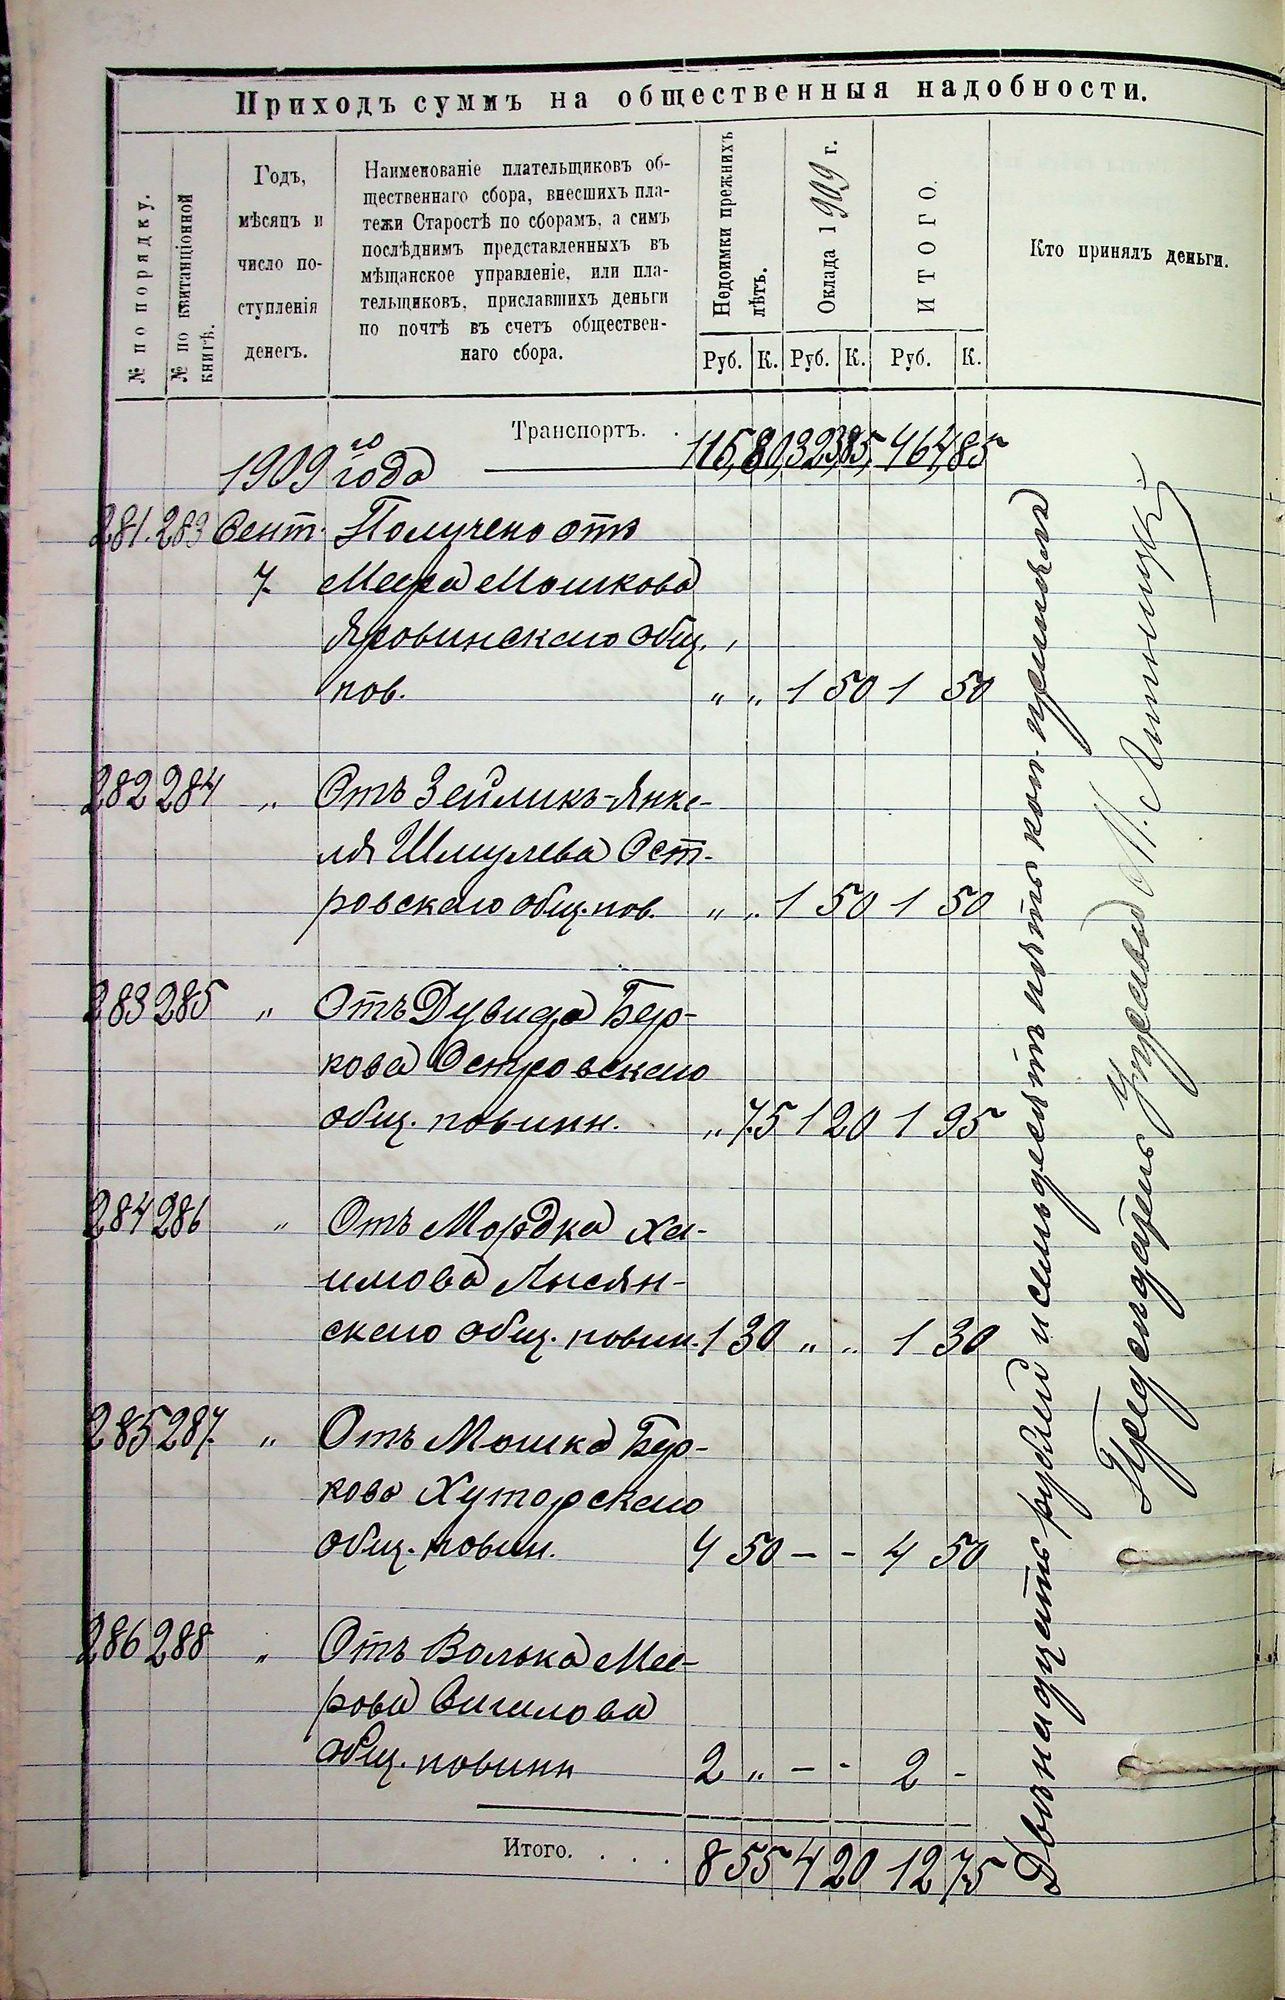 Приходъ суммъ на общественныя надобности.
№ по порядку.
№ по квитанціонной книгѣ.
Годъ,
мѣсяцъ и
число по-
ступленія
денегъ.
Наименованіе плательщиковъ об-
щественнаго сбора, внесшихъ пла-
тежи Старостѣ по сборамъ, а симъ
послѣднимъ представленныхъ въ
мѣщанское управленіе, или пла-
тельщиковъ, приславшихъ деньги
по почтѣ въ счетъ обществен-
наго сбора.
Недоимки прежнихъ лѣтъ.
Оклада 1909 г.
ИТОГО.
Кто принялъ деньги.
Руб. К. Руб. К. Руб. К.
Транспортъ. . 115, 80, 323, 85, 464, 85
1909 го года
281. 283 Сент. Получено отъ
7. Меера Мошкова
Яровинскаго общ.
пов. „ „ 1 50 1 50
282 284 „ Отъ Зейликъ-Янке-
ля Шмулева Ост-
ровскаго общ. пов. „ „ 1 50 1 50
283 285 „ Отъ Дувида Бер-
кова Островскаго
общ. повинн. „ 75 1 20 1 95
284 286 „ Отъ Мордка Ха-
имова Лысян-
скаго общ. повин. 1 30 „ „ 1 30
285 287. „ Отъ Мошка Бер-
кова Хуторскаго
общ. повин. 4 50 – - 4 50
286 288 „ Отъ Волька Мее-
рова Сигалова
общ. повинн 2 „ – - 2 -
Итого. . . . 8 55 4 20 12 75
Двѣнадцать рублей и семьдесятъ пять коп. принялъ
Предсѣдатель Управы